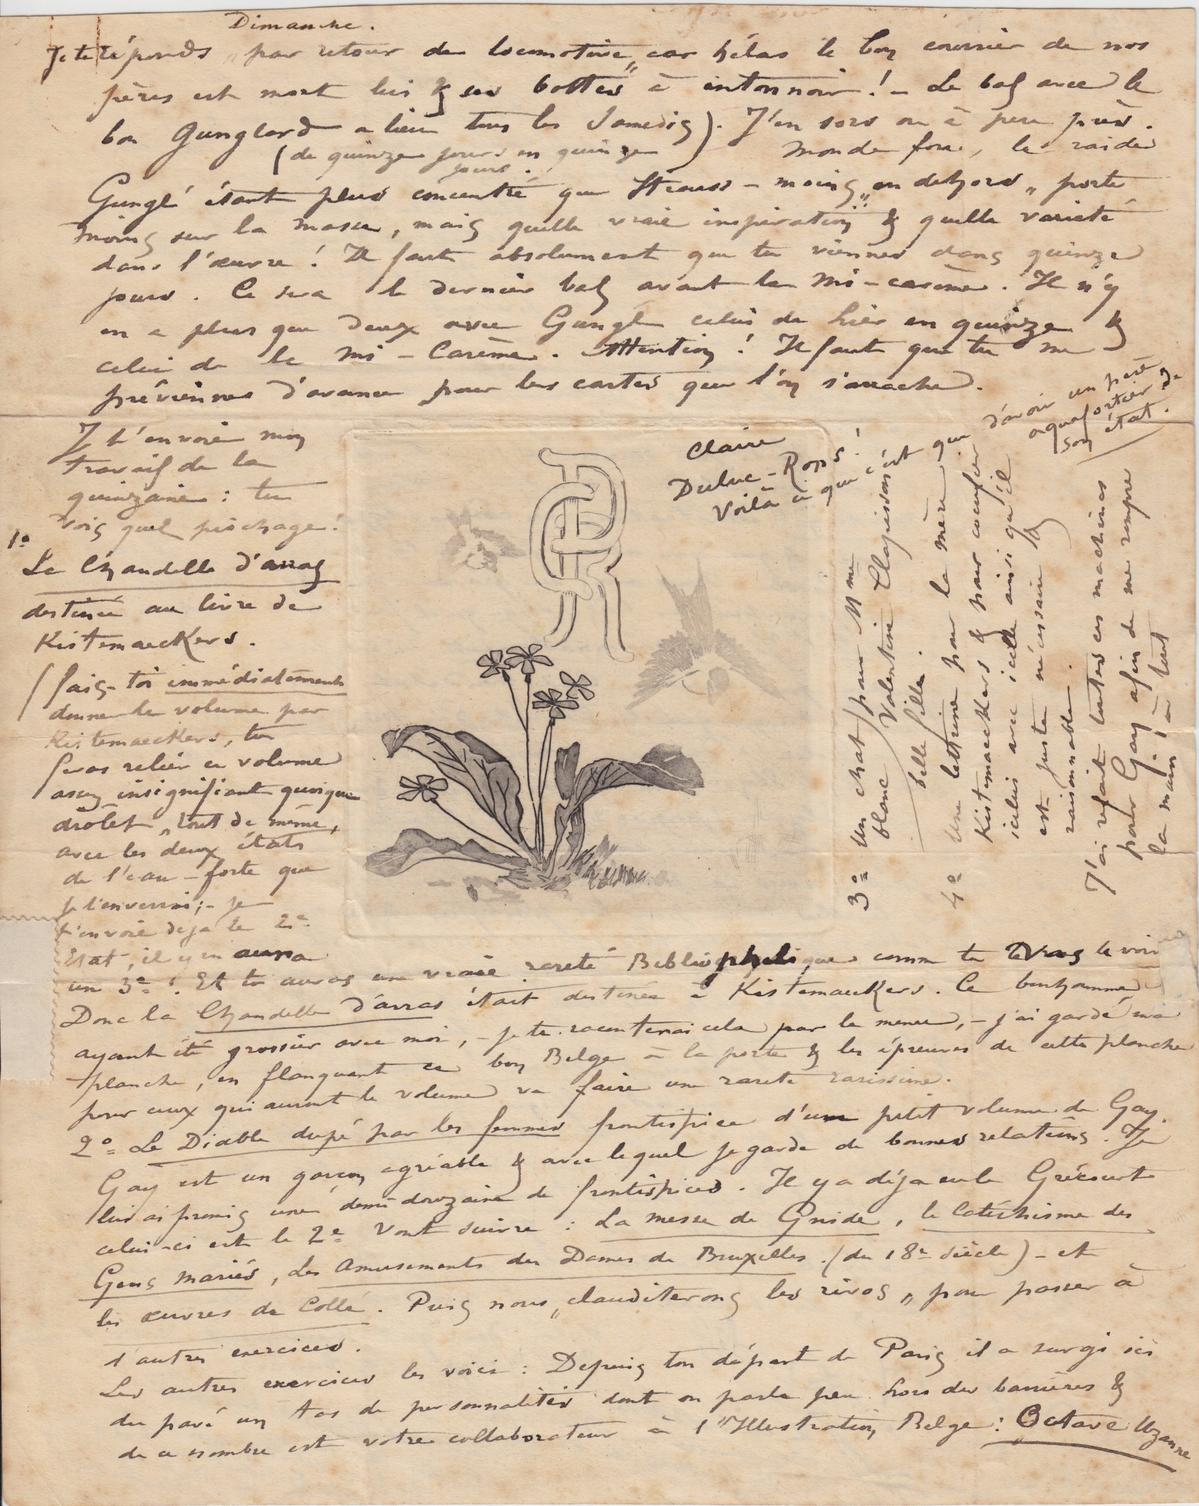 Dimanche.
Je te réponds „par retour de locomotive„ car hélas le bon courrier de nos
pères est mort lui & ses bottes à entonnoir ! – Le bal avec le
bon Gunglard a lieu tous les Samedis). J'en sors ou à peu près.
(de quinze jours en quinze jours.) Monde fou, le raide
Gungl' étant plus concentré que Strauss – moins „en dehors„ porte
moins sur la masse, mais quelle vraie inspiration & quelle variété
dans l'œuvre ! Il faut absolument que tu viennes dans quinze
jours. Ce sera le dernier bal avant la Mi-carême. Il n'y
en a plus que deux avec Gungl celui de hier en quinze &
celui de la Mi-Carême. Attention ! Il faut que tu me
préviennes d'avance pour les cartes que l'on s'arrache.
Je t'envoie mon
travail de la
quinzaine : tu
vois quel piochage !
1º
La Chandelle d'arras
destinée au livre de
Kistemaeckers.
(fais-toi immédiatement
donner le volume par
Kistemaeckers, tu
feras relier ce volume
assez insignifiant quoique
drôlet „tout de même,
avec les deux états
de l'eau-forte que
je t'enverrai ; – je
t'envoie déjà le 2e
Etat, il y en aura
un 3e ! Et tu auras une vraie rareté Bibliophilique comme tu vas le voir
Donc la Chandelle d'arras était destinée à Kistemaeckers. Ce bonhomme
ayant été grossier avec moi, – je te raconterai cela par le menu, – j'ai gardé ma
planche, en flanquant ce bon Belge à la porte & les épreuves de cette planche
pour ceux qui auront le volume va faire une rareté rarissime.
2º Le Diable dupé par les femmes frontispice d'un petit volume de Gay.
Gay est un garçon agréable & avec lequel je garde de bonnes relations. Je
lui ai promis une demi douzaine de frontispices. Il y a déjà eu le Grécourt
celui-ci est le 2e Vont suivre : La messe de Gnide, le Catéchisme des
Gens mariés, Les Amusements des Dames de Bruxelles. (du 18e siècle) – et
les œuvres de Collé. Puis nous „clauditerons les rivos„ pour passer à
d'autres exercices.
Les autres exercices les voici : Depuis ton départ de Paris il a surgi ici
du pavé un tas de personnalités dont on parle peu hors des barrières &
de ce nombre est votre collaborateur à l'Illustration Belge : Octave Uzanne
Claire
Duluc-Rops !
Voilà ce que c'est que d'avoir un père
aquafortiste de
son état.
3º Un chat pour Mme
blanc Valentine Clapisson
belle fille.
4º Une lettrine pour la mère
Kistemaeckers & pour coiffer
icelui avec icelle ainsi qu'il
est juste nécessaire &
raisonnable.
J'ai refait toutes ces machines
pour Gay afin de me rompre
la main à tout